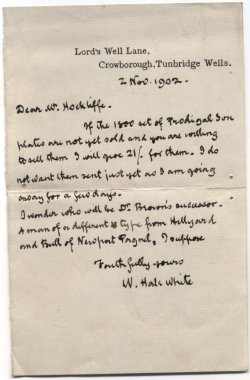 Lord's Well Lane,
Crowborough, Tunbridge Wells.
2 Nov. 1902.
Dear Mr. Hockliffe.
If the 1800 set of Prodigal Son
plates are not yet sold and you are willing
to sell them I will give 21/- for them. I do
not want them sent just yet as I am going
away for a few days.
I wonder who will be Dr. Brown's successor.
A man of a different type from Hillyard
and Bull of Newport Pagnel, I suppose
Faithfully yours
W. Hale White